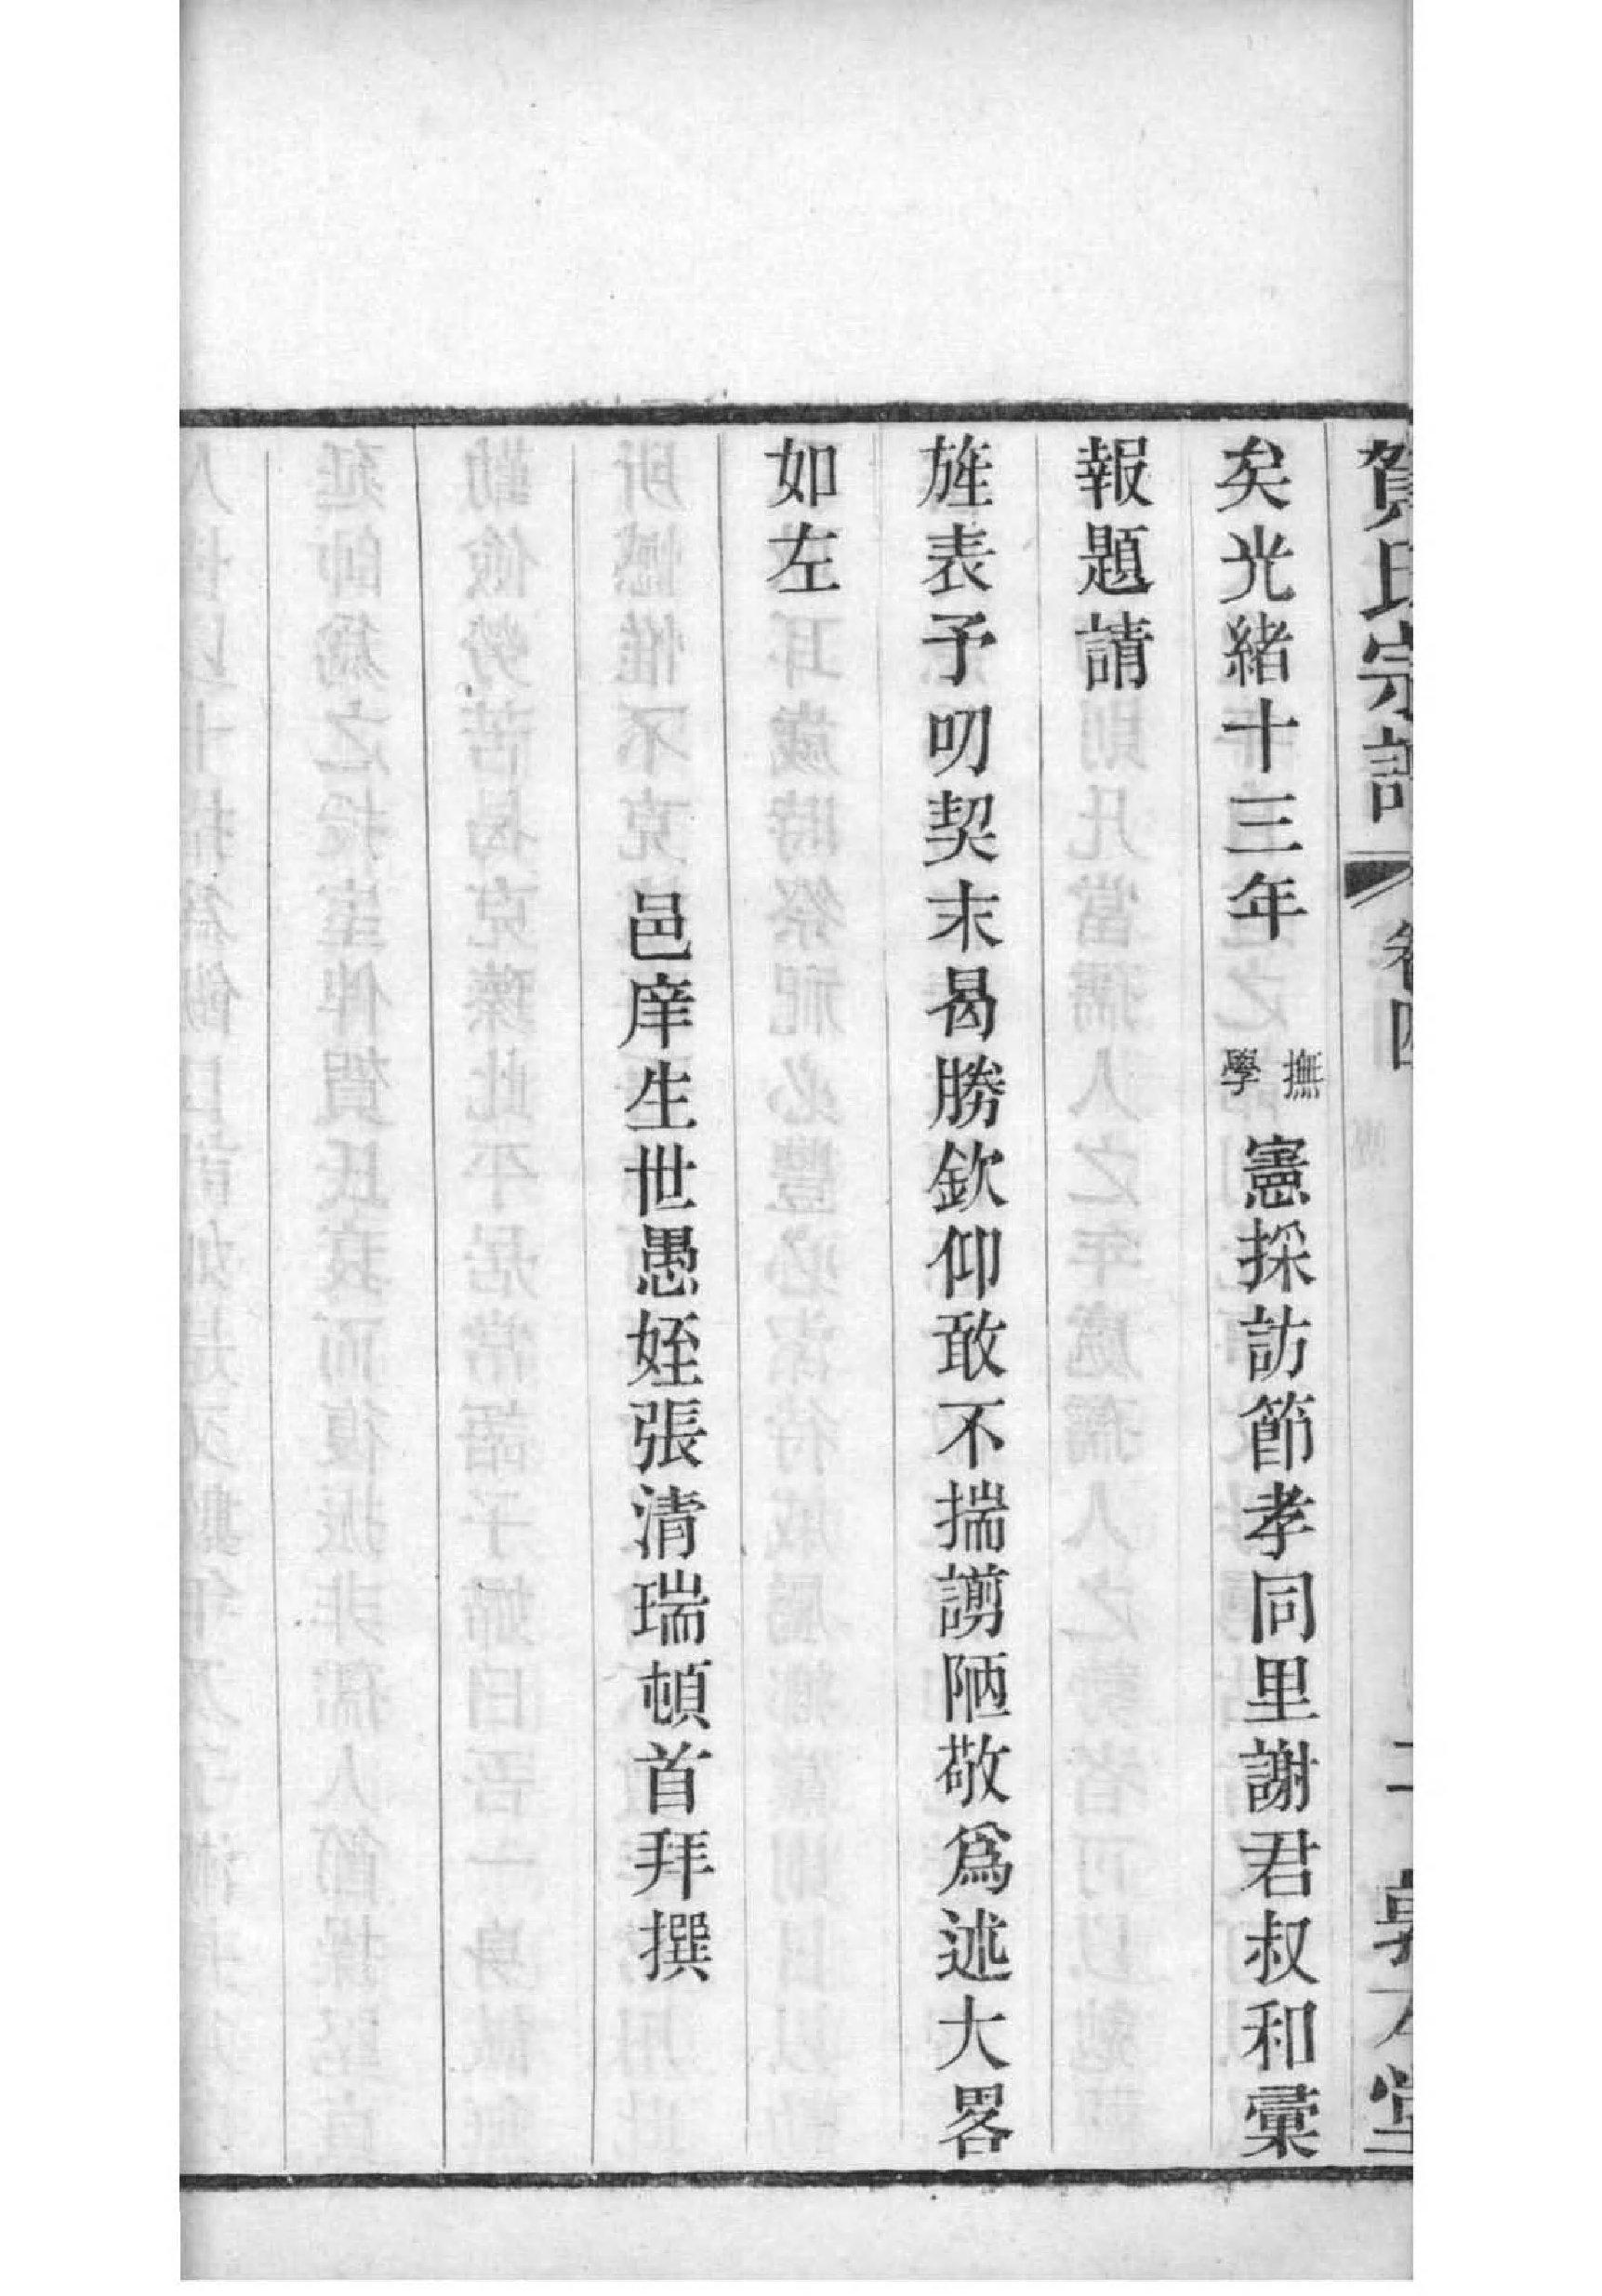 賀氏宗譜 卷四
矣光緒十三年撫學憲採訪節孝同里謝君叔和彙
報題請
旌表予叨契末曷勝欽仰敢不揣謭陋敬爲述大畧
如左
邑庠生世愚姪張清瑞頓首拜撰